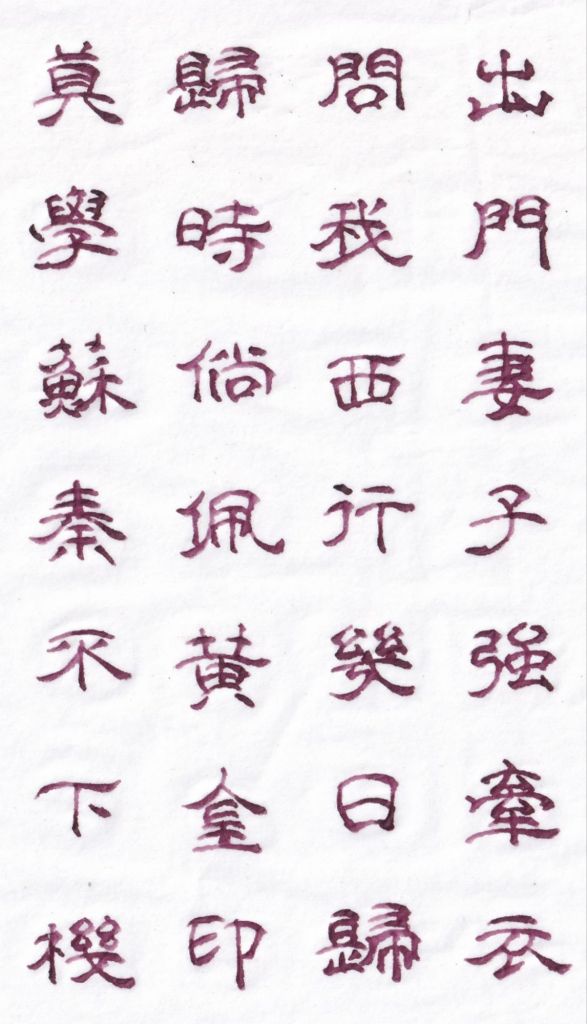 出門妻子強牽衣
問我西行幾日歸
歸時倘佩黄金印
莫學蘇秦不下機